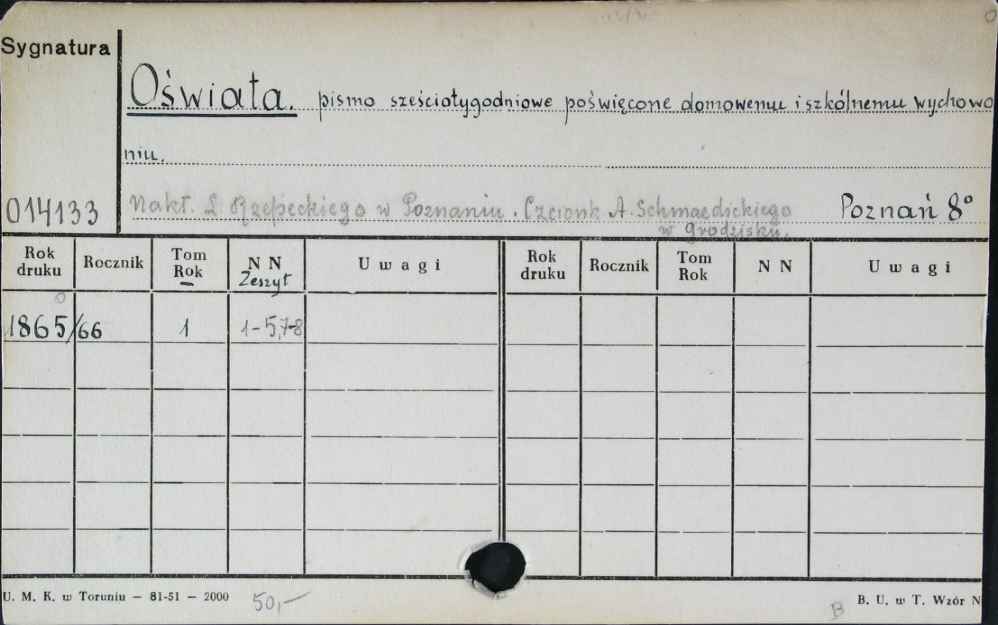 Sygnatura
Oświata. pismo sześciotygodniowe poświęcone domowemu i szkólnemu wychowa
niu.
014133
Nakł. L Rzepeckiego w Poznaniu. Czcionk A. Schmaedickiego Poznań 8°
w Grodzisku.
Rok druku Rocznik Tom Rok N N Zeszyt Uwagi Rok druku Rocznik Tom Rok N N Uwagi
1865/66 1 1-5,7-8
U. M. K. w Toruniu — 81-51 — 2000 50,- B B. U. w T. Wzór N